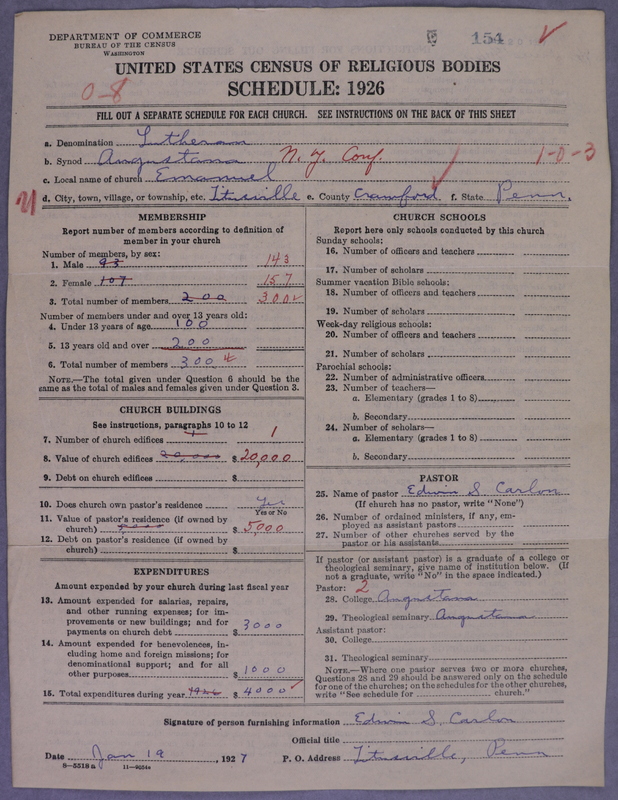 DEPARTMENT OF COMMERCE
BUREAU OF THE CENSUS
WASHINGTON
154
UNITED STATES CENSUS OF RELIGIOUS BODIES
SCHEDULE: 1926
0-8
FILL OUT A SEPARATE SCHEDULE FOR EACH CHURCH. SEE INSTRUCTIONS ON THE BACK OF THIS SHEET
a. Denomination Lutheran
b. Synod Augustana N. Y. Conf. 1-0-3
c. Local name of church Emanuel
d. City, town, village, or township, etc. Titusville e. County Crawford f. State Penn.
MEMBERSHIP
Report number of members according to definition of
member in your church
Number of members, by sex:
1. Male 93 143
2. Female 107 157
3. Total number of members 200 300
Number of members under and over 13 years old:
4. Under 13 years of age 100
5. 13 years old and over 200
6. Total number of members 300
NOTE.—The total given under Question 6 should be the
same as the total of males and females given under Question 3.
CHURCH BUILDINGS
See instructions, paragraphs 10 to 12
7. Number of church edifices 1 1
8. Value of church edifices 20,000 $ 20,000
9. Debt on church edifices $
10. Does church own pastor's residence Yes
Yes or No
11. Value of pastor's residence (if owned by
church) $ 5000
12. Debt on pastor's residence (if owned by
church) $
EXPENDITURES
Amount expended by your church during last fiscal year
13. Amount expended for salaries, repairs,
and other running expenses; for im-
provements or new buildings; and for
payments on church debt $ 3000
14. Amount expended for benevolences, in-
cluding home and foreign missions; for
denominational support; and for all
other purposes $ 1000
15. Total expenditures during year 1926 $ 4000
CHURCH SCHOOLS
Report here only schools conducted by this church
Sunday schools:
16. Number of officers and teachers
17. Number of scholars
Summer vacation Bible schools:
18. Number of officers and teachers
19. Number of scholars
Week-day religious schools:
20. Number of officers and teachers
21. Number of scholars
Parochial schools:
22. Number of administrative officers
23. Number of teachers—
a. Elementary (grades 1 to 8)
b. Secondary
24. Number of scholars—
a. Elementary (grades 1 to 8)
b. Secondary
PASTOR
25. Name of pastor Edwin S. Carlon
(If church has no pastor, write "None")
26. Number of ordained ministers, if any, em-
ployed as assistant pastors
27. Number of other churches served by the
pastor or his assistants
If pastor (or assistant pastor) is a graduate of a college or
theological seminary, give name of institution below. (If
not a graduate, write "No" in the space indicated.)
Pastor: 2
28. College Augustana
29. Theological seminary Augustana
Assistant pastor:
30. College
31. Theological seminary
NOTE.—Where one pastor serves two or more churches,
Questions 28 and 29 should be answered only on the schedule
for one of the churches; on the schedules for the other churches,
write "See schedule for church."
Signature of person furnishing information Edwin S. Carlon
Official title
Date Jan 19, 1927 P. O. Address Titusville, Penn
8—5518a 11—9254a